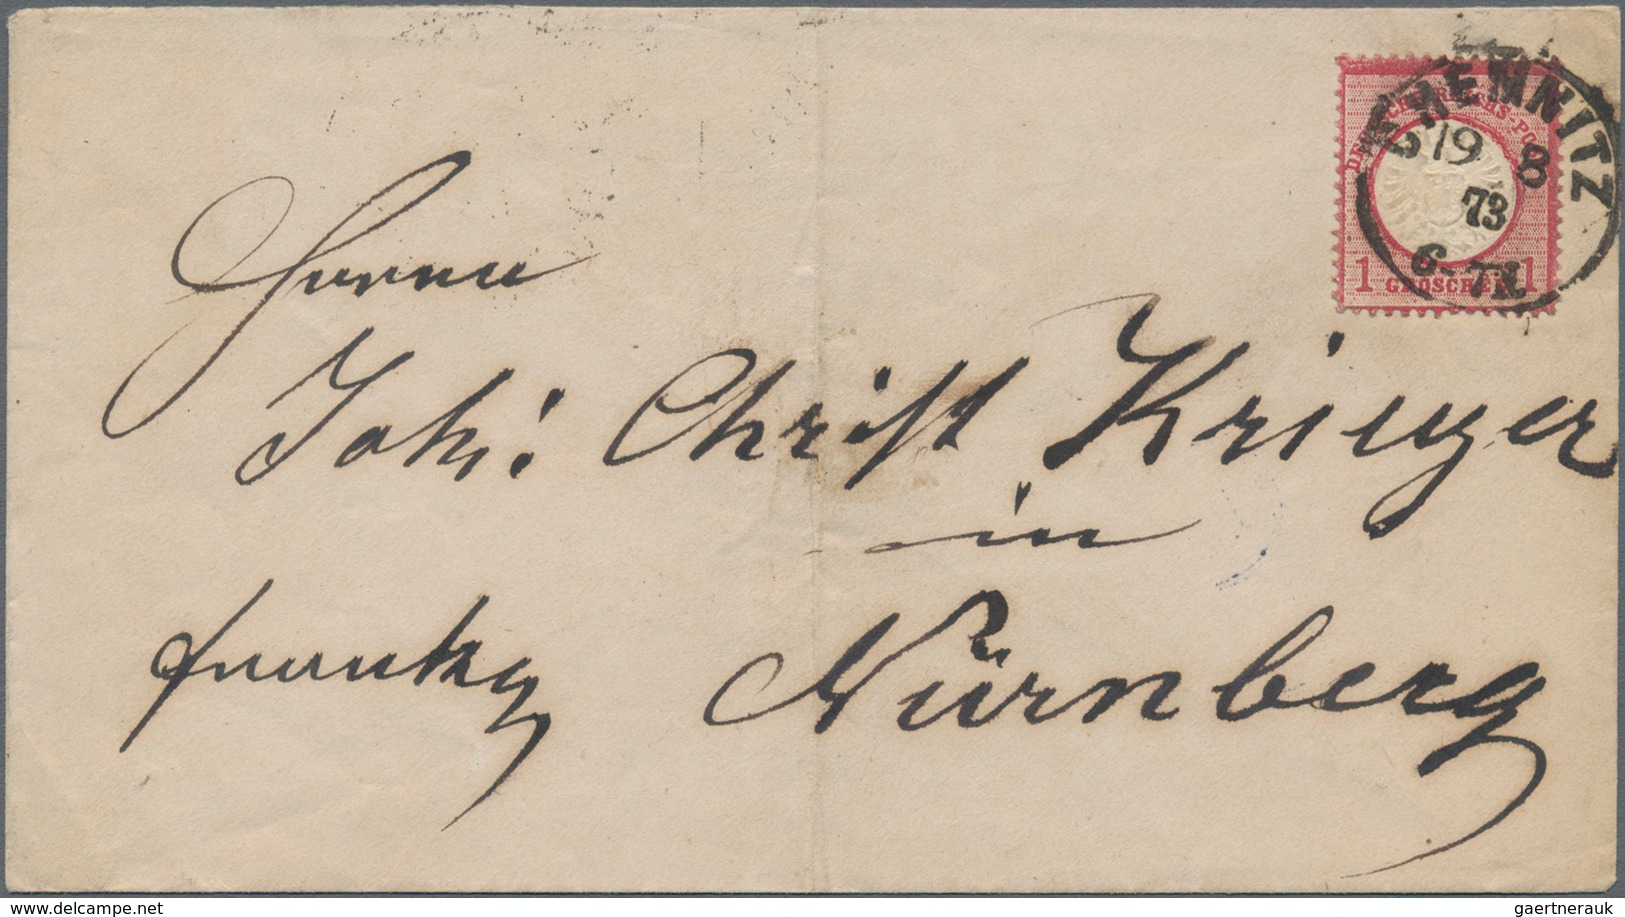 CHEMNITZ
19 8
73
6-7N.
DEUTSCHE REICHS-POST
1 GROSCHEN 1
Herrn
Joh: Christ Krieger
in
franko Nürnberg
delcampe.net
gaertnerauk